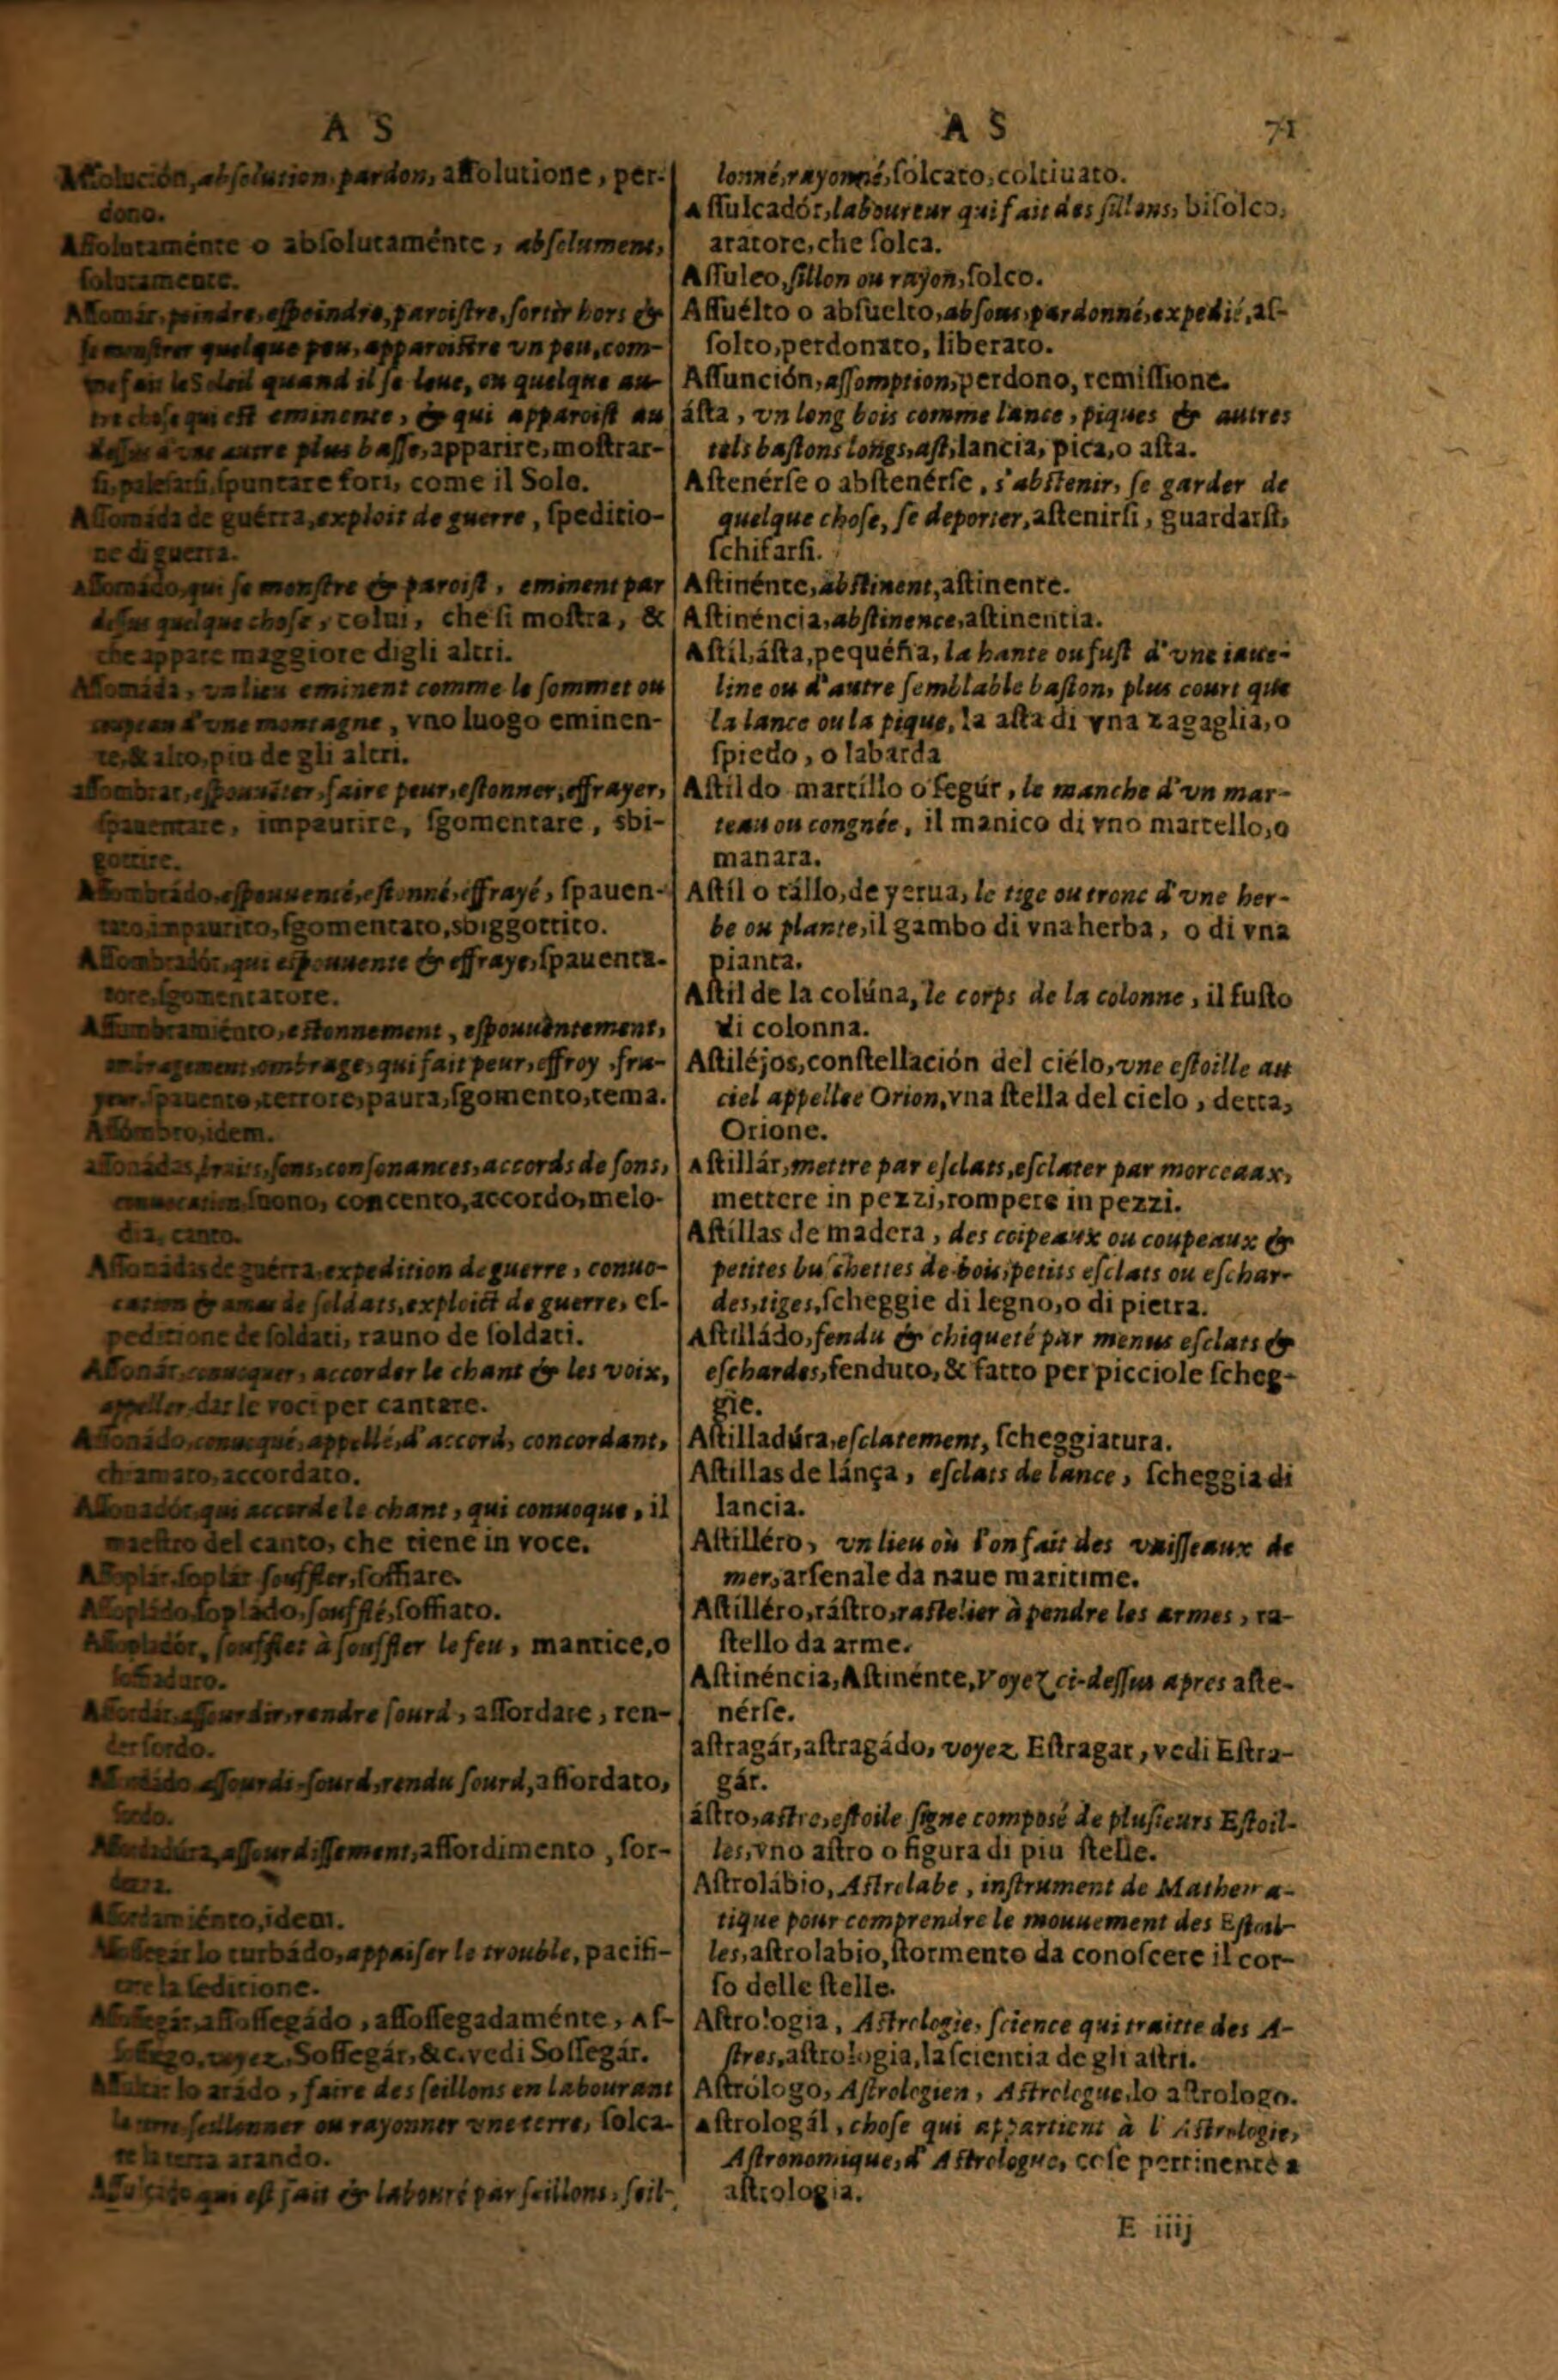 A S
Aſſolución, abſolution, pardon, aſſolutione, per-
dono.
Aſſolutaménte o abſolutaménte, abſolument,
ſolutamente.
Aſſomár, peindre, eſpeindre, paroiſtre, ſortir hors &
ſe monſtrer quelque peu, apparoiſtre vn peu, com-
me fait le Soleil quand il ſe leue, ou quelque au-
tre choſe qui eſt eminente, & qui apparoiſt au
deſſus d'vne autre plus baſſe, apparire, moſtrar-
ſi, paleſarſi, ſpuntare fori, come il Sole.
Aſſomáda de guérra, exploit de guerre, ſpeditio-
ne di guerra.
aſſomádo, qui ſe monſtre & paroiſt, eminent par
deſſus quelque choſe, colui, che ſi moſtra, &
che appare maggiore di gli altri.
Aſſomáda, vn lieu eminent comme le ſommet ou
d'vne montagne, vno luogo eminen-
te, & alto, piu de gli altri.
aſſombrar, eſpouuãter, faire peur, eſtonner, effrayer,
ſpauentare, impaurire, ſgomentare, sbi-
gottire.
Aſſombrádo, eſpouuenté, eſtonné, effrayé, ſpauen-
tato, impaurito, ſgomentato, sbiggottito.
Aſſombradór, qui eſpouuente & effraye, ſpauenta-
tore, ſgomentatore.
Aſſumbramiénto, eſtonnement, eſpouuãntement,
ombragement, ombrage, qui fait peur, effroy, fra-
yeur, ſpauento, terrore, paura, ſgomento, tema.
Aſſómbro, idem.
aſſonádas, ſons, conſonances, accords de ſons,
ſuono, concento, accordo, melo-
dia, canto.
Aſſonádas de guérra, expedition de guerre, conuo-
cation & amas de ſoldats, exploict de guerre, eſ-
peditione de ſoldati, rauno de ſoldati.
Aſſonár, conuoquer, accorder le chant & les voix,
appeller, dar le voci per cantare.
Aſſonádo, conuoqué, appellé, d'accord, concordant,
chiamato, accordato.
Aſſonadór, qui accorde le chant, qui conuoque, il
maeſtro del canto, che tiene in voce.
Aſſoplár, ſoplár ſouffler, ſoffiare.
Aſſopládo, ſopládo, ſoufflé, ſoffiato.
Aſſopladór, ſoufflet à ſouffler le feu, mantice, o
ſoffiaduro.
Aſſordár, aſſourdir, rendre ſourd, aſſordare, ren-
der ſordo.
aſſourdi, ſourd, rendu ſourd, aſſordato,
ſordo.
aſſourdiſſement, aſſordimento, ſor-
Aſſordamiénto, idem.
Aſſoſſegár lo turbádo, appaiſer le trouble, pacifi-
care la ſeditione.
Aſſoſſegár, aſſoſſegádo, aſſoſſegadaménte, Aſ-
ſoſſiego, voyez, Soſſegár, &c. vedi Soſſegár.
Aſſulcár lo arádo, faire des ſeillons en labourant
la terre, ſeillonner ou rayonner vne terre, ſolca-
re la terra arando.
Aſſulcádo qui eſt fait & labouré par ſeillons, ſeil-
A S 71
lonné, rayonné, ſolcato, coltiuato.
aſſulcadór, laboureur qui fait des ſillons, bifolco,
aratore, che ſolca.
Aſſuleo, ſillon ou rayon, ſolco.
Aſſuélto o abſuelto, abſous, pardonné, expedié, aſ-
ſolto, perdonato, liberato.
Aſſunción, aſſomption, perdono, remiſſione.
áſta, vn long bois comme lance, piques & autres
tels baſtons longs, aſt, lancia, pica, o aſta.
Aſtenérſe o abſtenérſe, s'abſtenir, ſe garder de
quelque choſe, ſe deporter, aſtenirſi, guardarſi,
ſchifarſi.
Aſtinénte, abſtinent, aſtinente.
Aſtinéncia, abſtinence, aſtinentia.
Aſtíl, áſta, pequéña, la hante ou fuſt d'vne iaue-
line ou d'autre ſemblable baſton, plus court que
la lance ou la pique, la aſta di vna zagaglia, o
ſpiedo, o labarda
Aſtil do martíllo o ſegúr, le manche d'vn mar-
teau ou congnée, il manico di vno martello, o
manara.
Aſtíl o tállo, de yerua, le tige ou tronc d'vne her-
be ou plante, il gambo di vna herba, o di vna
pianta.
Aſtil de la colúna, le corps de la colonne, il fuſto
di colonna.
Aſtiléjos, conſtellación del ciélo, vne eſtoille au
ciel appellee Orion, vna ſtella del cielo, detta,
Orione.
aſtillár, mettre par eſclats, eſclater par morceaux,
mettere in pezzi, rompere in pezzi.
Aſtíllas de madera, des coipeaux ou coupeaux &
petites buſchettes de bois, petits eſclats ou eſchar-
des, tiges, ſcheggie di legno, o di pietra.
Aſtilládo, fendu & chiqueté par menus eſclats &
eſchardes, fenduto, & fatto per picciole ſcheg-
gie.
Aſtilladúra, eſclatement, ſcheggiatura.
Aſtillas de lánça, eſclats de lance, ſcheggia di
lancia.
Aſtilléro, vn lieu où l'on fait des vaiſſeaux de
mer, arſenale da naue maritime.
Aſtilléro, ráſtro, raſtelier à pendre les armes, ra-
ſtello da arme.
Aſtinéncia, Aſtinénte, Voyez ci-deſſus apres aſte-
nérſe.
aſtragár, aſtragádo, voyez Eſtragar, vedi Eſtra-
gár.
áſtro, aſtre, eſtoile ſigne compoſé de pluſieurs Eſtoil-
les, vno aſtro o figura di piu ſtelle.
Aſtrolábio, Aſtrolabe, inſtrument de Mathema-
tique pour comprendre le mouuement des Eſtoil-
les, aſtrolabio, ſtormento da conoſcere il cor-
ſo delle ſtelle.
Aſtrologia, Aſtrologie, ſcience qui traitte des A-
ſtres, aſtrologia, la ſcientia de gli aſtri.
Aſtrólogo, Aſtrologien, Aſtrologue, lo aſtrologo.
aſtrologál, choſe qui appartient à l'Aſtrologie,
Aſtronomique, d'Aſtrologue, coſe pertinente a
aſtrologia.
E iiij